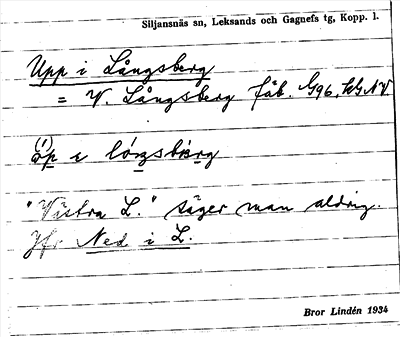 Siljansnäs sn, Leksands och Gagnefs tg, Kopp. l.
Upp i Långsberg
= V. Långsberg fäb. G96, kG NV
"Västra L." säger man aldrig.
Jfr Ned i L.
Bror Lindén 1934